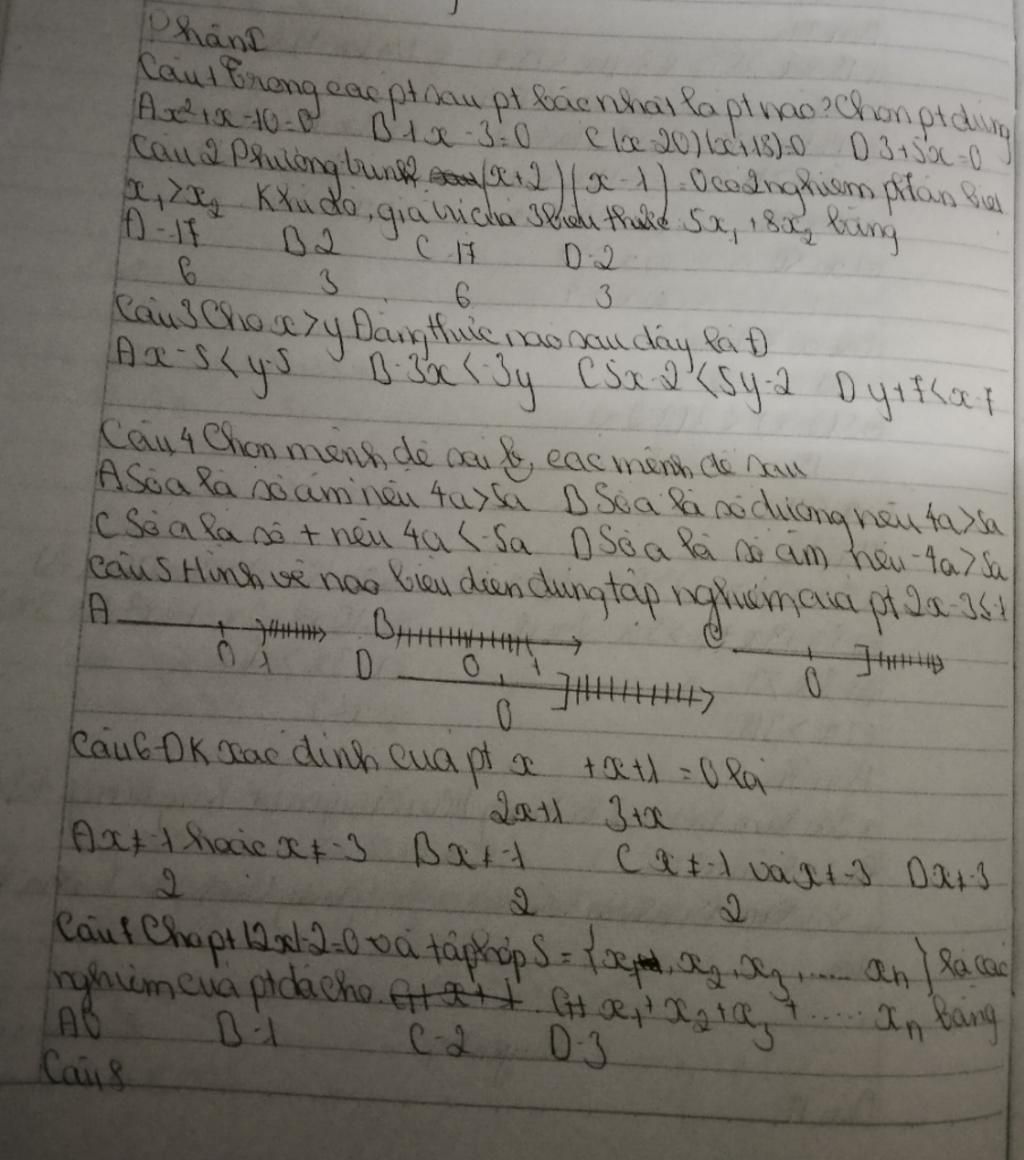 PhầnI
Câu1 Trong các pt sau pt bậc nhất là pt nào? Chọn pt đúng
A x²+x-10=0 B 1x-3=0 C (x-20)(x+18)=0 D 3+5x=0
Câu 2 Phương trình (x+2)(x-1)=0 có 2 nghiệm phân biệt
x₁>x₂ Khi đó, giá trị của biểu thức 5x₁+8x₂ bằng
A -17 B 2 C 17 D -2
6 3 6 3
Câu3 Cho x>y Đẳng thức nào sau đây là Đ
A x-5<y-5 B -3x<-3y C 5x-2<5y-2 D y+7<x-7
Câu 4 Chọn mệnh đề sau các mệnh đề sau
A Số a là số âm nếu 4a>5a B Số a là số dương nếu 4a>5a
C Số a là số + nếu 4a<-5a D Số a là số âm nếu -4a>5a
Câu5 Hình vẽ nào biểu diễn đúng tập nghiệm của pt 2x-3≤-1
A B C
0 1 0 1 0
D
0
Câu6 ĐK xác định của pt x +x+1=0 là
2x+1 3+x
A x≠-1 hoặc x≠-3 B x≠-1 C x≠-1 và x≠-3 D x≠-3
2 2 2
Câu7 Cho pt |2x|-2=0 và tập hợp S={x₁,x₂,x₃,..... xₙ} là các
nghiệm của pt đã cho. x₁+x₂+x₃+..... xₙ bằng
A 0 B -1 C -2 D -3
Câu 8